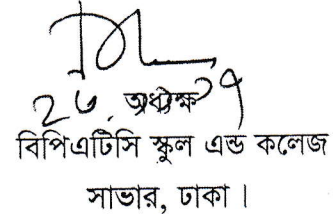 অধ্যক্ষ
বিপিএটিসি স্কুল এন্ড কলেজ
সাভার, ঢাকা।